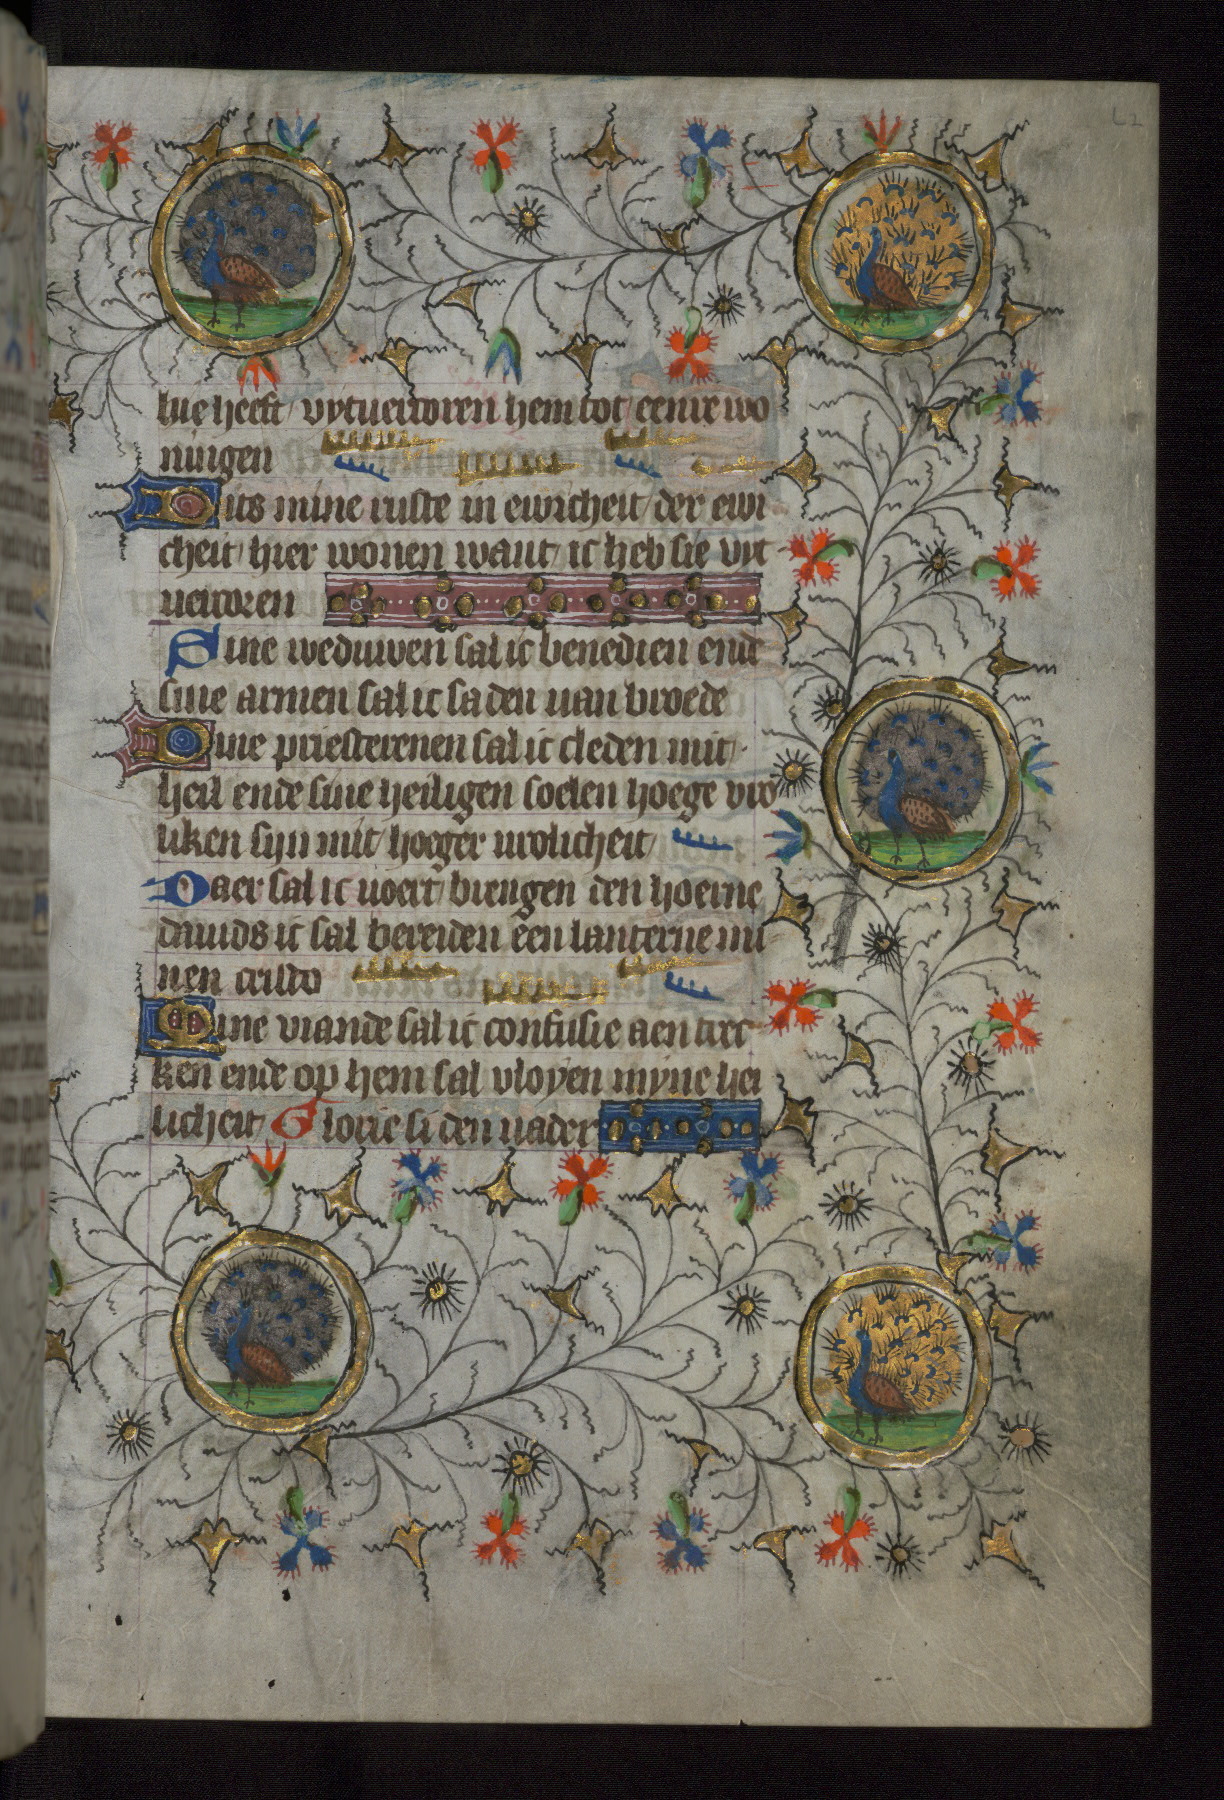 hije heeft vytuercoren hem tot eenre wo
ningen
Dits mine ruste in ewicheit der ewi
cheit hier wonen want ic heb sie vyt
uercoren
Sine weduwen sal ic benedien ende
sine armen sal ic saden uan broede
Sine priesterenen sal ic cleden mit
heil ende sine heiligen soelen hoege vro
liken sijn mit hoeger urolicheit
Daer sal ic uoert brengen den hoerne
dauids ic sal bereiden een lanterne mi
nen cristo
Sine viande sal ic confusie aen trec
ken ende op hem sal vloyen myne hei
licheit Glorie si den uader